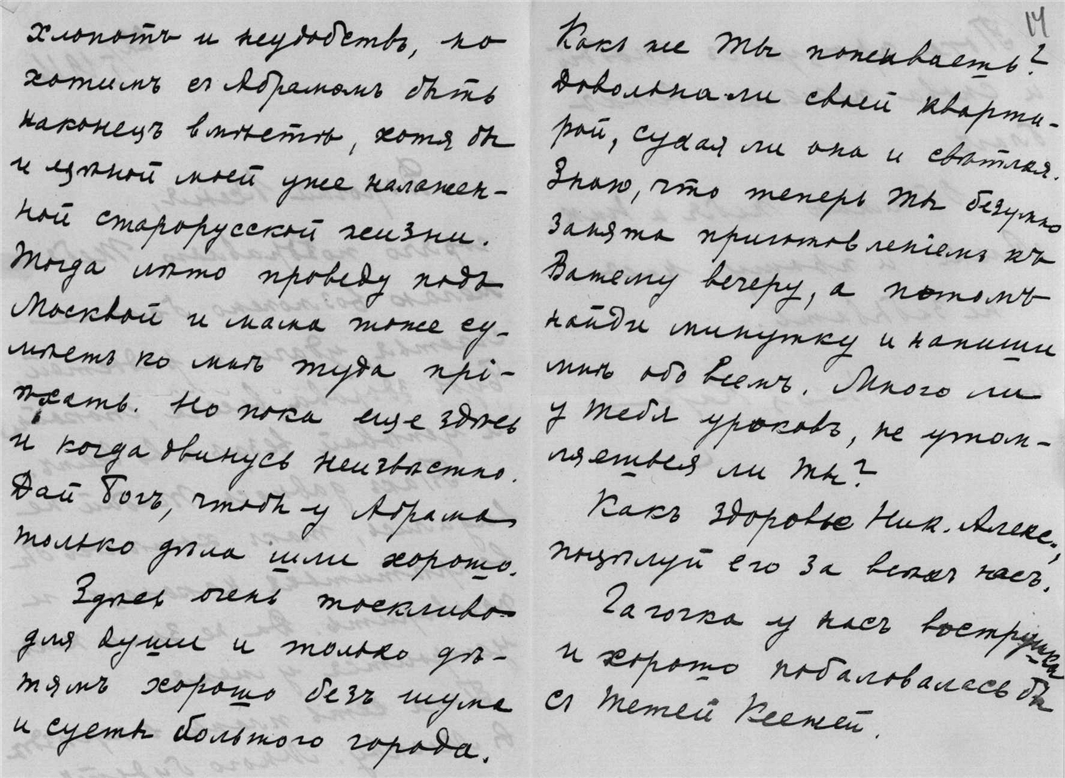 хлопотъ и неудобствъ, но
хотимъ съ Абрамомъ быть
наконецъ вмѣстѣ, хотя бы
и цѣной моей уже налажен-
ной старорусской жизни.
Тогда лѣто проведу подъ
Москвой и мама тоже су-
мѣетъ ко мнѣ туда прі-
ѣхать. Но пока еще здѣсь
и когда двинусь неизвѣстно.
Дай Богъ, чтобы у Абрама
только дѣла шли хорошо.
Здѣсь очень тоскливо
для души и только дѣ-
тямъ хорошо безъ шума
и суеты большого города.
14
Какъ же Ты поживаешь?
Довольна ли своей кварти-
рой, сухая ли она и свѣтлая.
Знаю, что теперь Ты безумно
занята приготовленіемъ къ
Вашему вечеру, а потомъ
найди минутку и напиши
мнѣ обо всемъ. Много ли
у Тебя уроковъ, не утом-
ляешься ли Ты?
Какъ здоровье Ник. Алекс.,
поцѣлуй его за всѣхъ насъ.
Гагочка у насъ вострушка
и хорошо побаловалась бы
съ Тетей Ксеней.